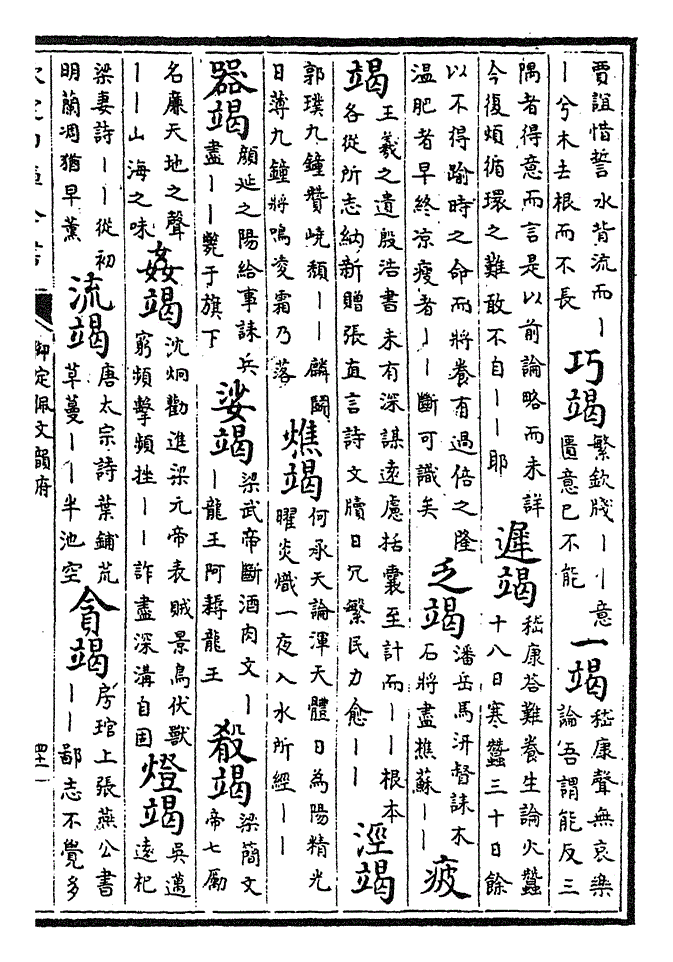 賈誼惜誓水背流而丨丨兮木去根而不長 巧竭 繁欽牋丨丨意匱意已不能 一竭 嵇康聲無哀樂論吾謂能反三
隅者得意而言是以前論略而未詳今復煩循環之難敢不自丨丨耶 遲竭 嵇康答難養生論火蠶十八日寒蠶三十日餘
以不得踰時之命而將養有過倍之隆溫肥者早終涼瘦者丨丨斷可識矣 乏竭 潘岳馬汧督誄木石將盡樵蘇丨丨 疲
竭 王羲之遺殷浩書未有深謀遠慮括囊至計而丨丨根本各從所志納新贈張直言詩文牘日冗繁民力愈丨丨 涇竭
郭璞九鐘贊嶢頹丨丨麟鬬日薄九鐘將鳴凌霜乃落 燋竭 何承天論渾天體日為陽精光曜炎熾一夜入水所經丨丨
器竭 顏延之陽給事誄兵盡丨丨斃于旗下 娑竭 梁武帝斷酒肉文丨丨龍王阿耨龍王 殽竭 梁簡文帝七勵
名廉天地之聲丨丨山海之味 姦竭 沈炯勸進梁元帝表賊景鳥伏獸窮頻擊頻挫丨丨詐盡深溝自固 燈竭 吳邁遠杞
梁妻詩丨丨從初明蘭凋猶早薰 流竭 唐太宗詩葉鋪荒草蔓丨丨半池空 貪竭 房琯上張燕公書丨丨鄙志不覺多
欽定四庫全書 御定佩文韻府 四十一